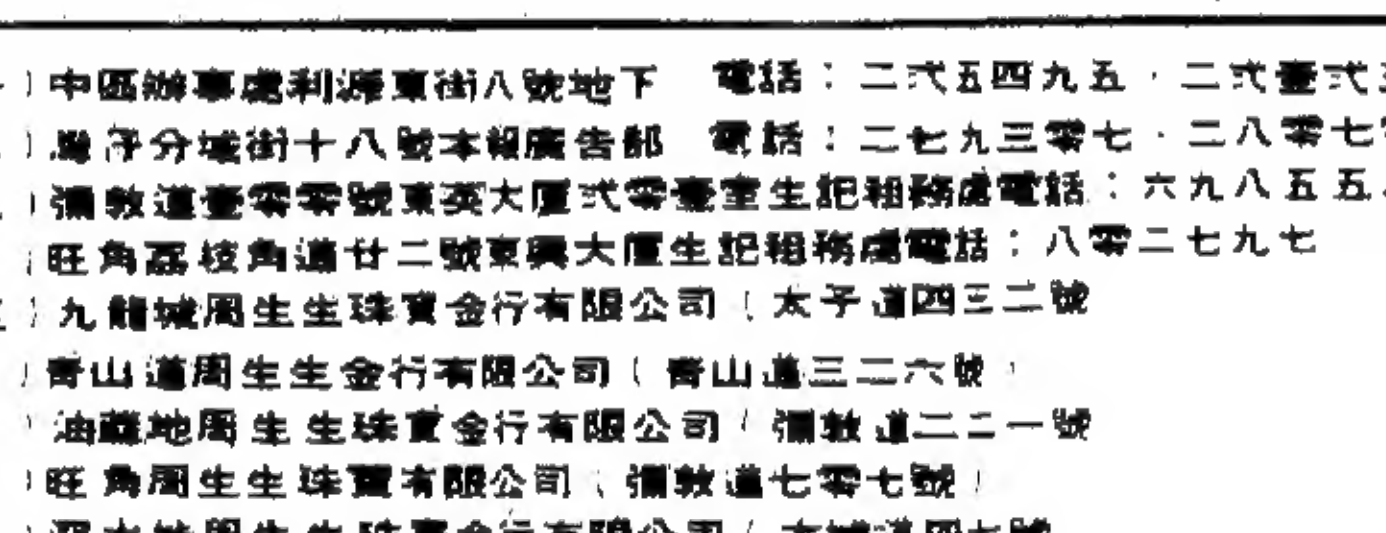 ）中區辦事處利源東街八號地下　電話：二弍五四九五・二弍壹弍
）灣仔分域街十八號本報廣告部　電話：二七九三零七・二八零七
）彌敦道壹零零號東英大廈弍零壹室生記租務處電話：六九八五五
）旺角荔枝角道廿二號東興大廈生記租務處電話：八零二七九七
）九龍城周生生珠寶金行有限公司（太子道四三二號
）青山道周生生金行有限公司（青山道三二六號）
）油蔴地周生生珠寶金行有限公司（彌敦道二二一號
）旺角周生生珠寶有限公司（彌敦道七零七號）
周生生珠寶金行有限公司